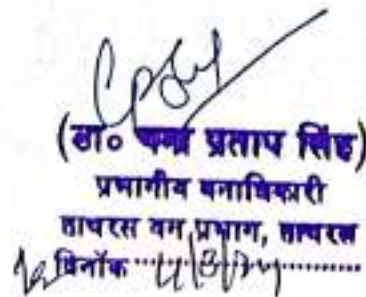 (डा० चन्द्र प्रताप सिंह)
प्रभागीय वनाधिकारी
हाथरस वन प्रभाग, हाथरस
दिनाँक